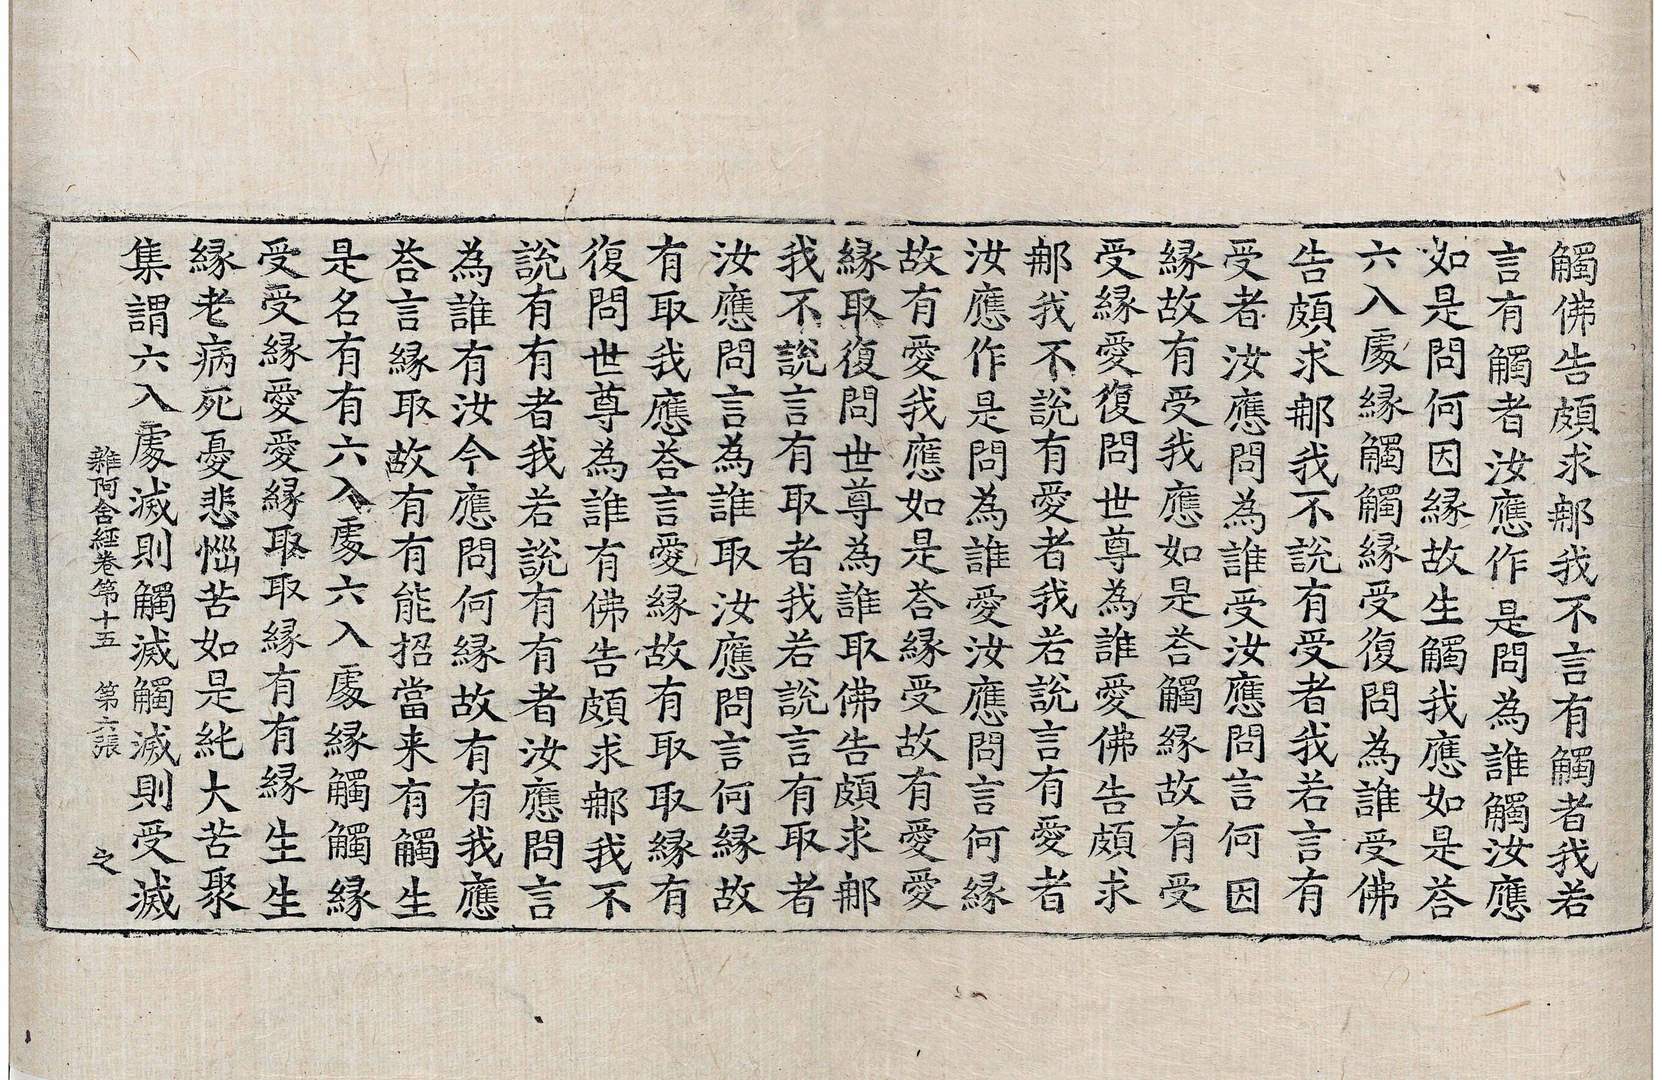 觸佛告頗求那我不言有觸者我若
言有觸者汝應作是問為誰觸汝應
如是問何因縁故生觸我應如是荅
六入處縁觸觸縁受復問為誰受佛
告頗求那我不説有受者我若言有
受者汝應問為誰受汝應問言何因
縁故有受我應如是荅觸縁故有受
受縁愛復問世尊為誰愛佛告頗求
那我不説有愛者我若説言有愛者
汝應作是問為誰愛汝應問言何縁
故有愛我應如是荅縁受故有愛愛
縁取復問世尊為誰取佛告頗求那
我不説言有取者我若説言有取者
汝應問言為誰取汝應問言何縁故
有取我應荅言愛縁故有取取縁有
復問世尊為誰有佛告頗求那我不
説有有者我若説有有者汝應問言
為誰有汝今應問何縁故有有我應
荅言縁取故有有能招當来有觸生
是名有有六入處六入處縁觸觸縁
受受縁愛愛縁取取縁有有縁生生
縁老病死憂悲惱苦如是純大苦聚
集謂六入處滅則觸滅觸滅則受滅
雜阿含經卷第十五 第六張 之